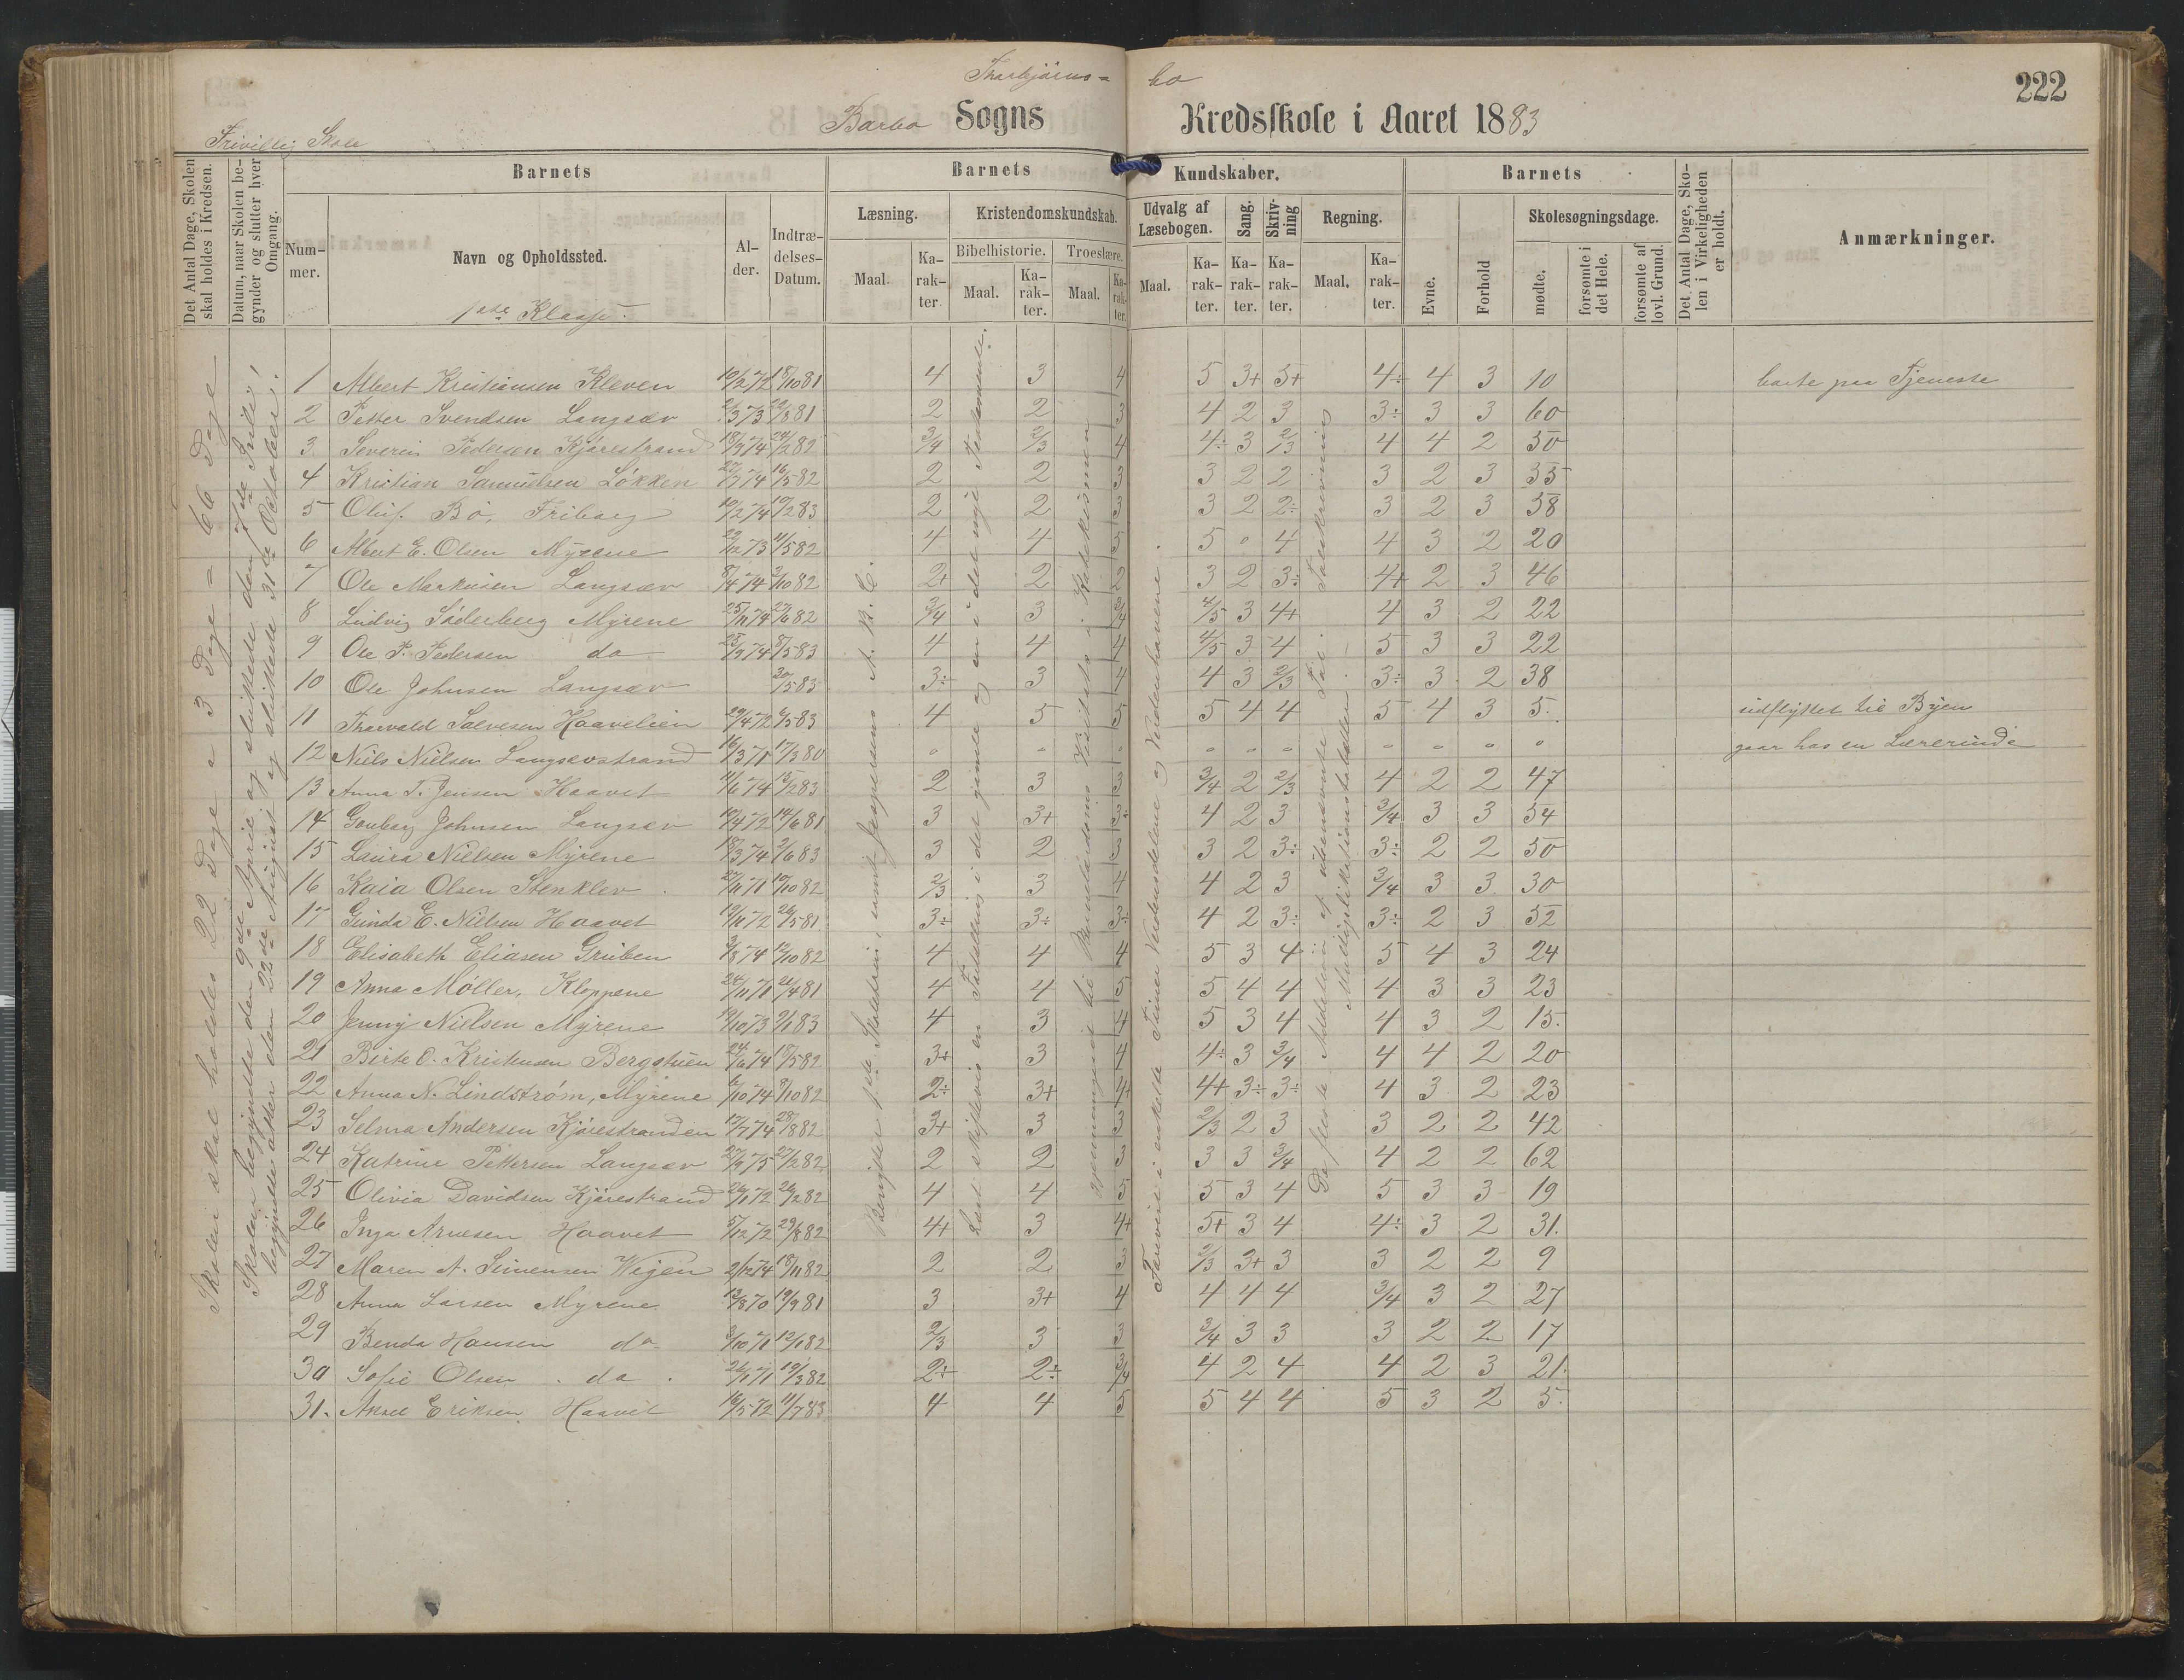 Thorbjörns= bo
222
Frivillig Skole
Barbo Sogns Kredsskole i Aaret 1883
Det Antal Dage, Skolen skal holdes i Kredsen.
Datum, naar Skolen begynder og slutter hver Omgang.
Barnets
Barnets Kundskaber.
Barnets
Det Antal Dage, Skolen i Virkeligheden er holdt.
Anmærkninger.
Nummer.
Navn og Opholdssted.
Alder.
Indtrædelses-Datum.
Læsning.
Kristendomskundskab.
Udvalg af Læsebogen.
Sang.
Skrivning
Regning.
Evne.
Forhold
Skolesøgningsdage.
Bibelhistorie.
Troeslære.
Maal. Karakter. Maal. Karakter. Maal. Karakter. Maal. Karakter. Karakter. Karakter. Maal. Karakter.
mødte.
forsømte i det Hele.
forsømte af lovl. Grund.
1ste Klasse.
Skolen skal holdes 22 Dage a 3 Dage = 66 Dage
Skolen begyndte den 9de April og sluttede den 7de Juli,
begyndte atter den 22de August og sluttede 31te Oktober.
Benyttet 1ste Skoletrin, samt Jespersens A. B. C.
Læst stykkevis en Fortællning i det gamle og en i det nye Testamente.
gjennemgaaet til Bønnfærdenes Visits i Katekismen
Favert i enkelte Timer Verdensdelene og Verdenshavene.
De fleste Addition af ubenævnte Tal. Talskrivning
Multiplikationstabellen.
1 Albert Kristiansen Kleven 10/2 72 18/10 81 4 3 4 5 3+ 5+ 4÷ 4 3 10 borte paa Tjeneste
2 Petter Svendsen Langsæv 2/3 73 22/8 81 2 2 3 4 2 3 3÷ 3 3 60
3 Severin Pedersen Kjörestrand 18/9 74 24/2 82 3/4 2/3 4 4÷ 3 2/3 4 4 2 50
4 Kristian Samuelsen Løkken 27/7 74 16/5 82 2 2 3 3 2 2 3 2 3 55
5 Oluf. Bö, Friborg 10/2 74 19/2 83 2 2 3 3 2 2÷ 3 2 3 58
6 Albert E. Olsen Myrene 22/12 73 11/5 82 4 4 5 5 " 4 4 3 2 20
7 Ole Markusen Langsæv 8/4 74 3/10 82 2+ 2 2 3 2 3÷ 4+ 2 3 46
8 Ludvig Söderberg Myrene 25/11 74 27/6 82 3/4 3 3/4 4/5 3 4+ 4 3 2 22
9 Ole P. Pedersen do 25/9 74 8/5 83 4 4 4 4/5 3 4 5 3 3 22
10 Ole Johnsen Langsæv 30/5 83 3÷ 3 4 4 3 2/3 3÷ 3 2 38
11 Thorvald Salvesen Haavelien 29/4 72 4/5 83 4 5 5 5 4 4 5 4 3 5. udflyttet til Byen
12 Niels Nielsen Langsævstrand 16/3 71 17/3 80 " " " " " " " " " " gaar hos en Lærerinde
13 Anna T. Jensen Haavet 11/6 74 15/2 83 2 3 3 3/4 2 2/3 4 2 2 47
14 Gonberg Johnsen Langsæv 19/4 72 14/6 81 3 3+ 3÷ 4 2 3 3/4 3 3 54
15 Laura Nielsen Myrene 18/3 74 2/6 83 3 2 3 3 2 3÷ 3÷ 2 2 50
16 Kaia Olsen Stenklev 27/11 71 10/10 82 2/3 3 4 4 2 3 3/4 3 3 30
17 Gunda E. Nielsen Haavet 19/11 72 26/5 81 3÷ 3÷ 3÷ 4 2 3÷ 3÷ 2 3 52
18 Elisabeth Eliasen Gruben 3/8 74 12/10 82 4 4 4 5 3 4 5 4 3 24
19 Anna Møller, Kloppene 24/11 71 21/4 81 4 4 5 5 4 4 4 3 3 23
20 Jenny Nielsen Myrene 12/10 73 2/1 83 4 3 4 5 3 4 4 3 2 15.
21 Birte O. Kristensen Bergstuen 24/6 74 18/5 82 3+ 3 4 4÷ 3 3/4 4 4 2 20
22 Anna N. Lindström, Myrene 6/10 74 8/10 82 2÷ 3+ 4+ 4+ 3÷ 3÷ 4 3 2 23
23 Selma Andersen Kjörestranden 17/7 74 28/8 82 3+ 3 3 2/3 2 3 3 2 2 42
24 Katrine Pettersen Langsæv 27/9 75 27/2 82 2 2 3 3 3 3/4 4 2 2 62
25 Olivia Davidsen Kjörestrand 26/1 72 24/2 82 4 4 5 5 3 4 5 3 3 19
26 Inga Arnesen Haavet 5/12 72 29/8 82 4+ 3 4+ 5+ 3 4 4÷ 3 2 31.
27 Maren A. Simensen Vejen 2/12 74 18/11 82 2 2 3 2/3 3+ 3 3 2 2 9
28 Anna Larsen Myrene 13/8 70 19/9 81 3 3+ 4 4 4 4 3/4 3 2 27
29 Benda Hansen do 3/10 71 12/1 82 2/3 3 3 3/4 3 3 3 2 2 17
30 Sofie Olsen do 26/1 71 19/3 82 2÷ 2÷ 3/4 4 2 4 4 2 3 21.
31. Aksel Eriksen Haavet 16/5 72 11/7 83 4 4 5 5 4 4 5 3 2 5.